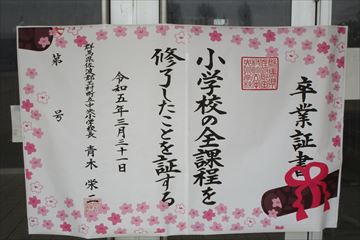 卒業証書
小学校の全課程を
修了したことを証する
令和五年三月三十一日
群馬県佐波郡玉村町立中央小学校長 青木栄二
第 号